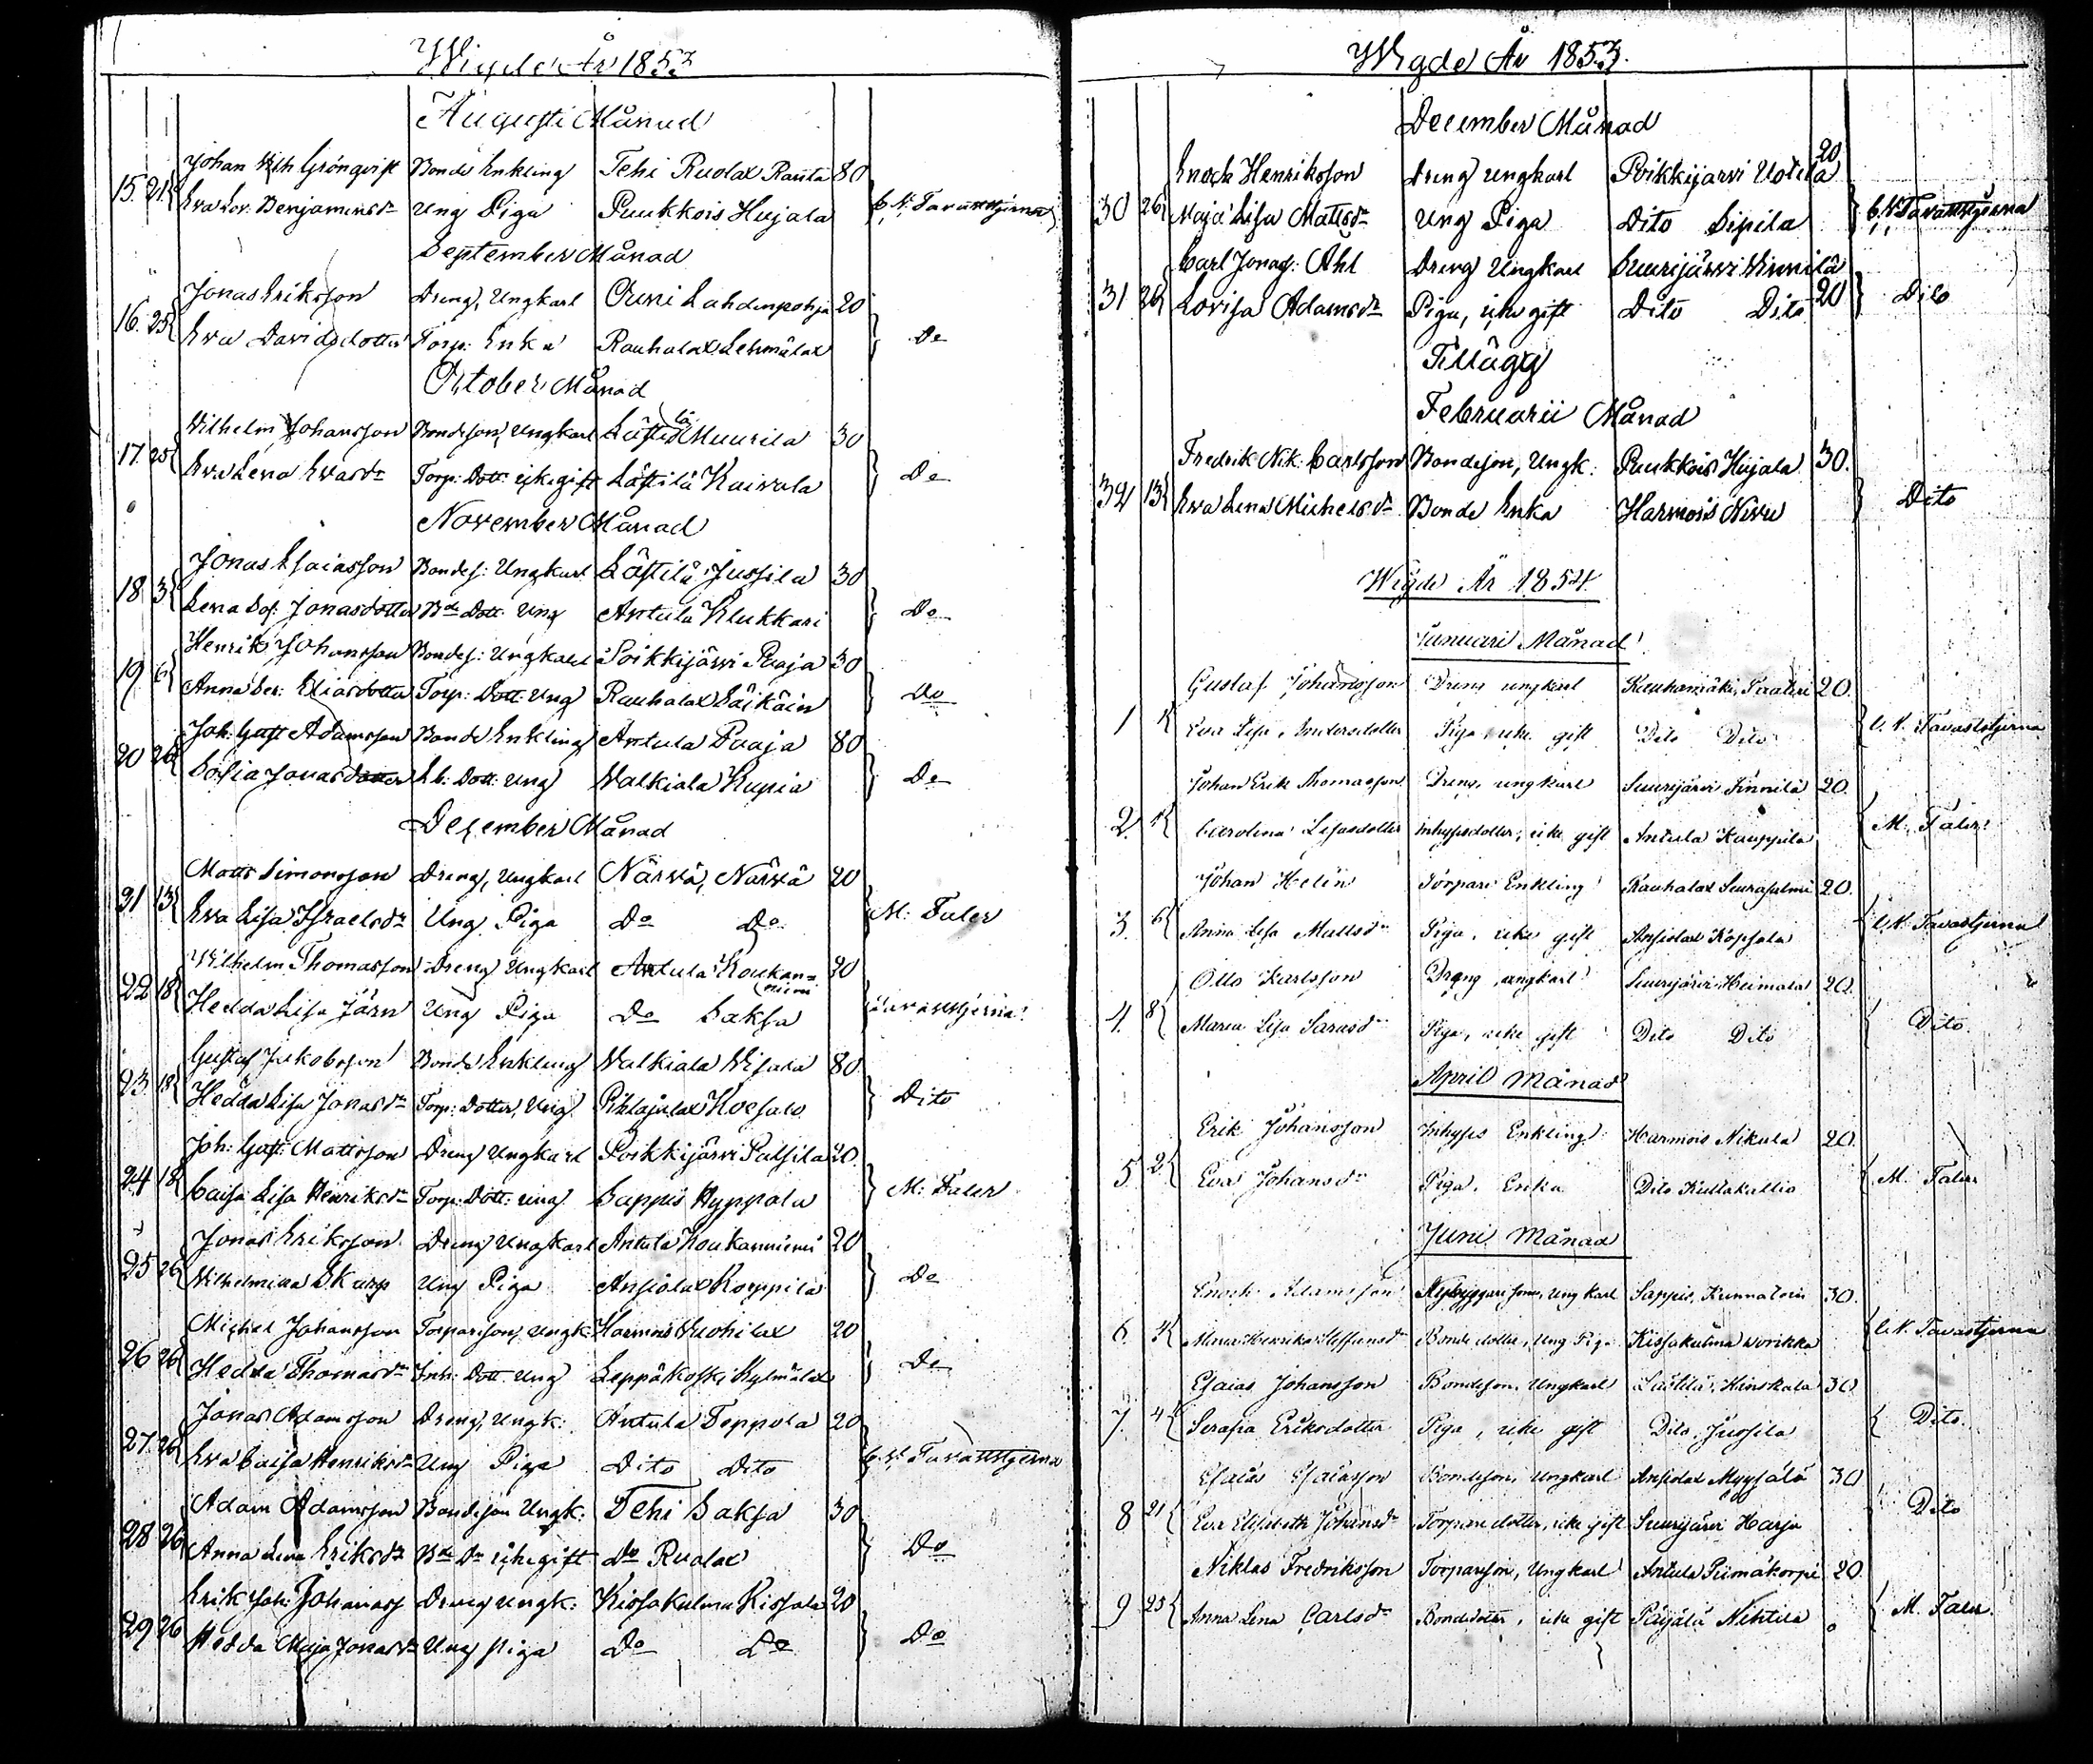 Wigde År 1853
Augusti Månad
Johan Wilh Grönqvist Bonde Enkling Tehi Ruolax Ranta 80
15. 21 Eva Lov. Benjaminsdr Ung Piga Puukkois Hujala C. N. Tavaststjerna
September Månad
Jonas Eriksson Dreng, Ungkarl Ouni Lahdenpohja 20
16. 25 Eva Davidsdotter Torp: Enka Rauhalax Lehmälax Do
October Månad
Wilhelm Johansson Bondeson, Ungkarl Lästilä Muurila 30
17. 25 Eva Lena Evasdr Torp: Dott: icke gift Lästilä Kaivula Do
November Månad
Jonas Esaiasson Bondes: Ungkarl Lästilä Jussila 30
18 3 Lena Sof. Jonasdotter Bde Dott: Ung Antula Klukkari Do
Henrik Johansson Bondes: Ungkarl Poikkijärvi Paaja 30
19 6 Anna Ser: Eliasdotter Torp: Dott: Ung Rauhalax Säikäin Do
Joh: Gust Adamsson Bonde Enkling Antula Paaja 80
20 26 Sofia Jonasdotter Dott: Ung Walkiala Kupia Do
December Månad
Matts Simonsson Dreng, Ungkarl Närvä, Närvä 20
21 13 Eva Lisa Israelsdr Ung Piga Do Do M: Faler
Wilhelm Thomasson Dreng Ungkarl Antula Koukanniemi 20
22 18 Hedda Lisa Järn Ung Piga Do Saksa Tavaststjerna
Gustaf Jakobsson Bonde Enkling Walkiala Wisala 80
23 18 Hedda Lisa Jonasdr Torp: Dotter, Ung Pihlajalax Dito
Joh: Gust: Mattsson Dreng Ungkarl Poikkijärvi Palsila 20
24 18 Caisa Lisa Henriksdr Torp: Dott: ung Sappis Hyppola M: Faler
Jonas Eriksson Dreng Ungkarl Antula Koukanniemi 20
25 26 Wilhelmina Skarp Ung Piga Ansiolax Korppila Do
Michel Johansson Torpareson, Ungk: Harmois Wuohilax 20
26 26 Hedda Thomasdr Inh: Dott. Ung Leppäkoski Kylmälax Do
Jonas Adamsson Dreng, Ungk: Antula Teppola 20
27 26 Eva Caisa Henriksdr Ung Piga Dito Dito C. N. Tavaststjerna
Adam Adamsson Bondeson Ungk: Tehi Saksa 30
28 26 Anna Lena Eriksdr Bde Dr icke gift do Ruolax Do
Erik Joh: Johanss Dreng Ungk: Kissakulma Kissala 20
29 26 Hedda Maja Jonasdr Ung piga Do Do Do
Wigde År 1853.
December Månad
Enoch Henriksson Dreng ungkarl Poikkijarvi Uotila 20
30 26 Maja Lisa Mattsdr Ung Piga Dito Sipila C. N. Tavaststjerna
Carl Jonas: Ahl Dreng Ungkarl Suurijärvi Finnilä
31 26 Lovisa Adamsdr Piga, icke gift Dito Dito 20 Dito
Tillägg
Februarii Månad
Fredrik Nik: Carlsson Bondeson, Ungk: Puukkois Hujala 30.
32 13 Eva Lena Michelsdr Bonde Enka Harmois Dito
Wigde År 1854.
Januari Månad
Gustaf Johansson Dreng ungkarl Kauhamäki, Taateri 20.
1 1 Eva Lisa Andersdotter Piga icke gift Dito Dito C. N. Tavaststjerna
Johan Erik Thomasson Dreng, ungkarl Suurijärvi Finnilä 20.
2. 1 Carolina Lisasdotter Inhysesdotter, icke gift Antula Kauppila M. Faler
Johan Helin Torpare Enkling Rauhalax Suurasalmi 20.
3. 6 Anna Lisa Mattsdr Piga, icke gift Ansiolax Kopsala C. N. Tavaststjerna
Otto Karlsson Dreng, ungkarl Suurijärvi Heimala 20.
4. 8 Maria Lisa Sarasdr Piga, icke gift Dito Dito Dito.
April Månad
Erik Johansson Inhyses Enkling Harmois Nikula 20.
5. 2. Eva Johansdr Piga, Enka Dito Kultakallio M. Faler
Juni Månad
Enoch Adamsson Nybyggareson, Ungkarl Sappis, 30.
6. 4 Henrika Bonde dotter, Ung Piga Kissakulma Worikka C. N. Tavaststjerna
Esaias Johansson Bondeson, Ungkarl Lästilä, Hinskala 30
7. 4 Serafia Eriksdotter Piga, icke gift Dito, Jussila Dito.
Esaias Esaiasson Bondeson, Ungkarl Ansiolax Myysälä 30
8 21 Eva Elisabeth Johansdr Torpare dotter, icke gift Suurijärvi Harju Dito
Niklas Fredriksson Torpareson, Ungkarl Antula Piimäkorpi 20.
9 25 Anna Lena Carlsdr Bondedotter, icke gift Päijälä Nihtilä M. Faler.